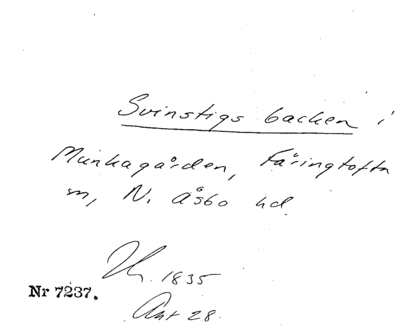 Svinstigs backen i
Munkagården, Fåringtofta
sn, N. Åsbo hd.
1835
Nr 7237.
Akt 28.